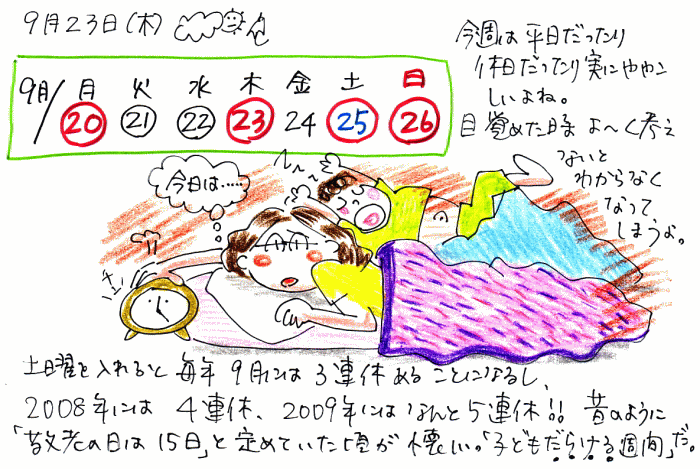 9月23日(木)
今週は平日だったり
休日だったり実にややこ
しいよね。
目覚めた時よ〜く考え
ないと
わからなく
なって
しまうよ。
9月/ 月 火 水 木 金 土 日
20 21 22 23 24 25 26
今日は……
土曜を入れると毎年9月には3連休あることになるし、
2008年には4連休、2009年にはなんと5連休!! 昔のように
「敬老の日は15日」と定めていた頃が懐しい。「子どもだらける週間」だ。